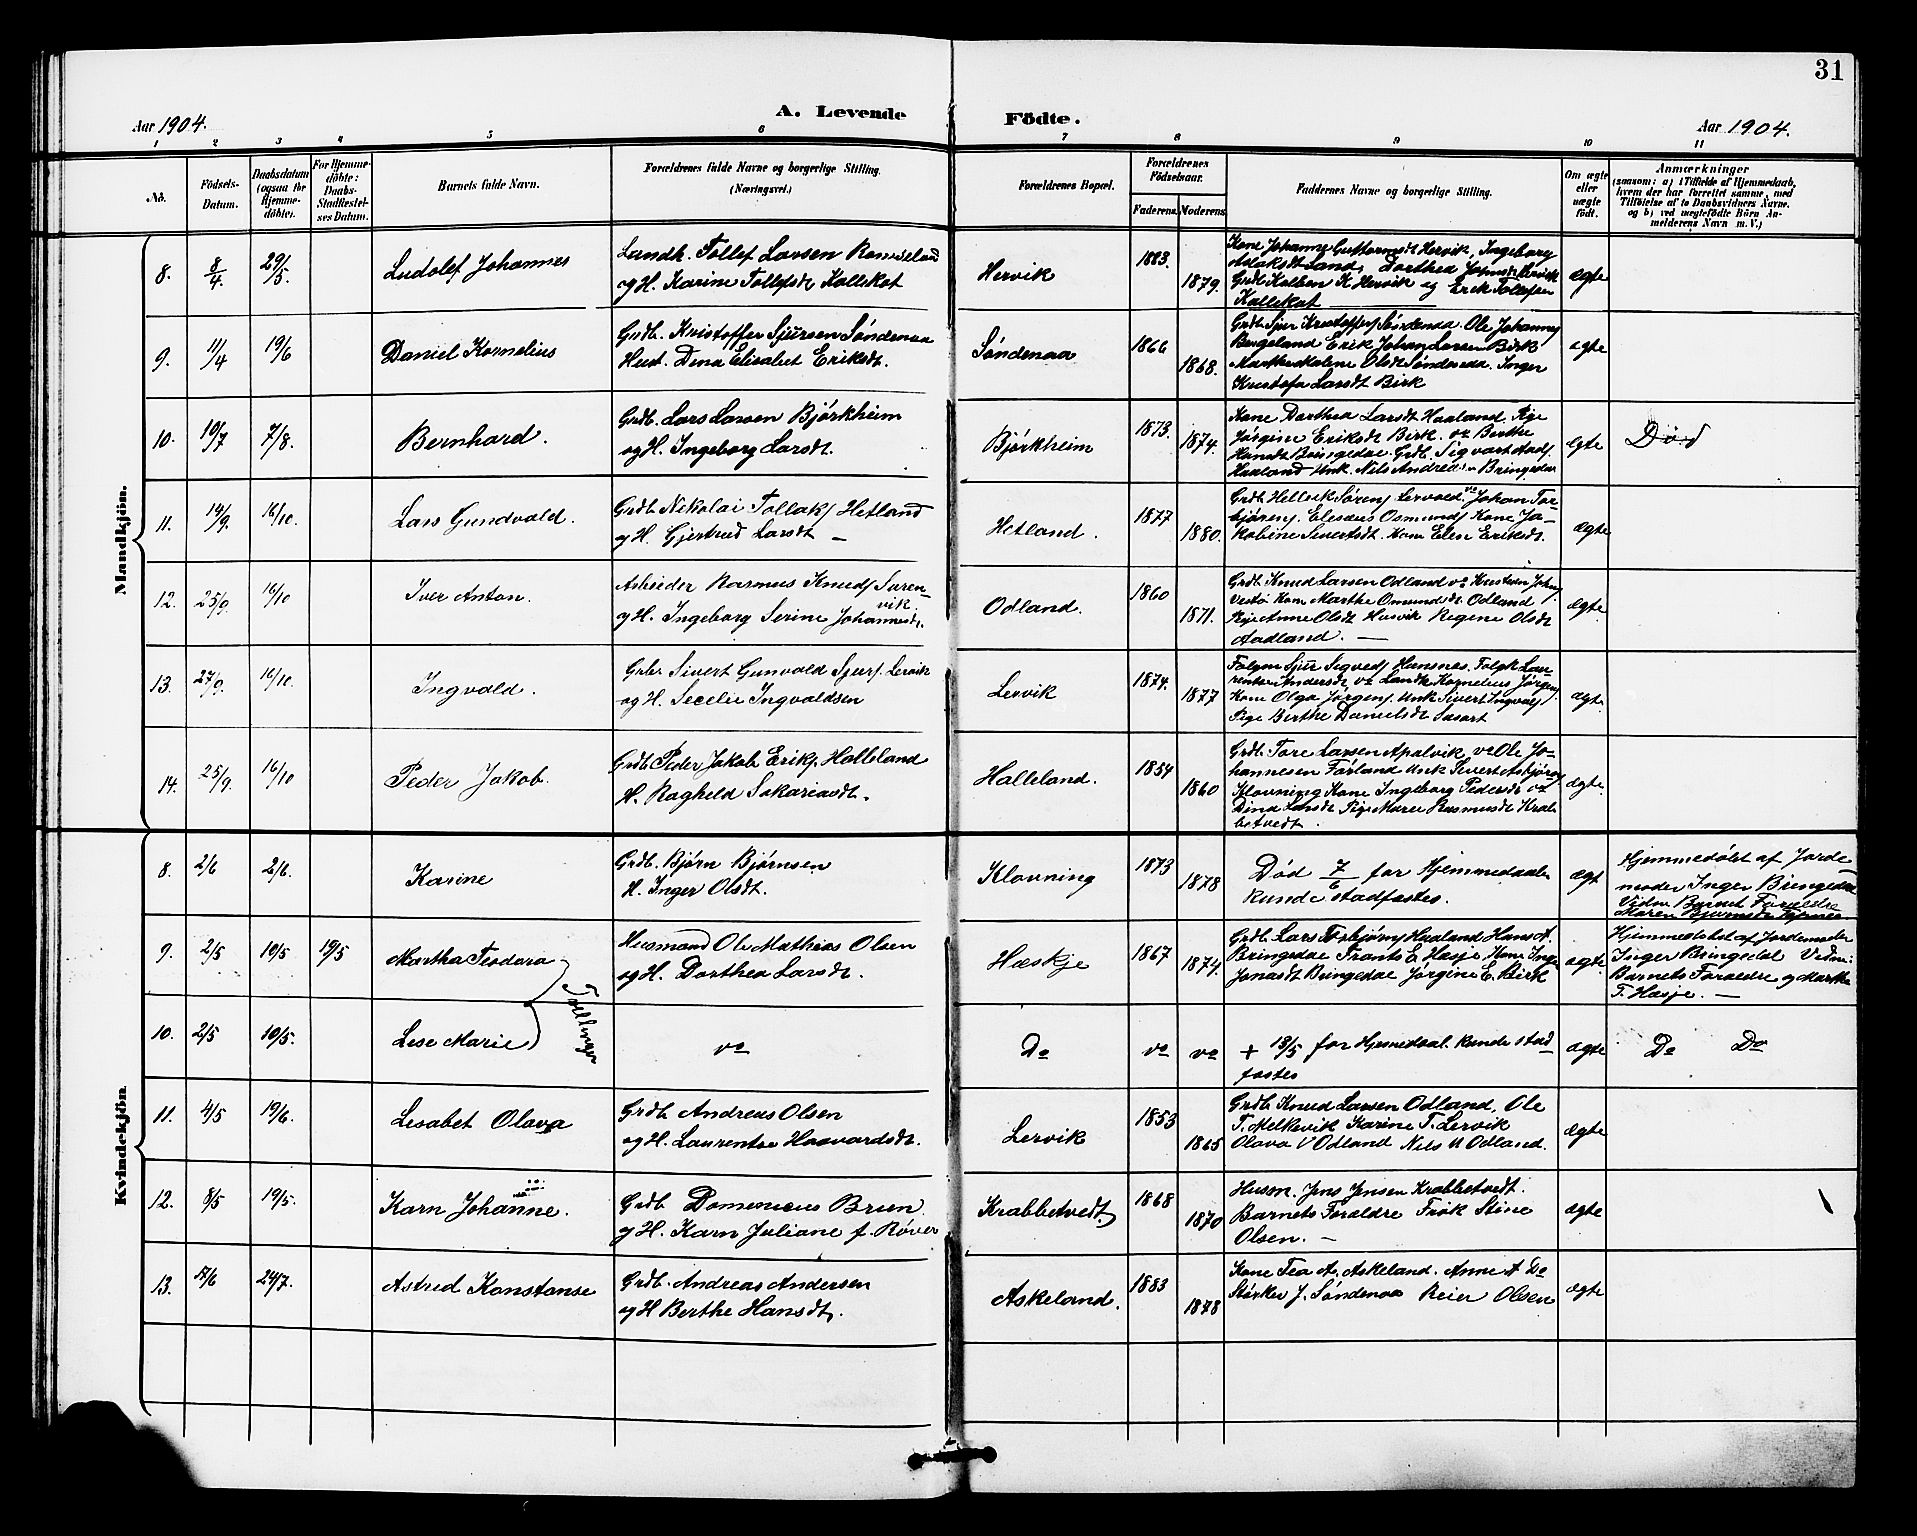 31
Aar 1904. A. Levende Födte. Aar 1904.
1 2 3 4 5 6 7 8 9 10 11
No. Födsels-Datum. Daabsdatum (ogsaa for Hjemme-döbte). For Hjemme-döbte: Daabs-Stadfæstel-ses Datum. Barnets fulde Navn. Forældrenes fulde Navne og borgerlige Stilling. (Næringsvei.) Forældrenes Bopæl. Forældrenes Födselsaar. Faderens. Moderens. Faddernes Navne og borgerlige Stilling. Om ægte eller uægte födt. Anmærkninger (saasom: a) i Tilfælde af Hjemmedaab, hvem der har forrettet samme, med Tilföielse af to Daabsvidners Navne, og b) ved uægtefödte Börn An-melderens Navn m. V.)
Mandkjön.
8. 8/4 29/5. Ludolef Johannes
Landh. Tollef Larsen Romseland
og H. Karine Tollefsdt Kallekot
Hervik 1883. 1879.
Kone Johanne Guttormsdt Hervik, Ingeborg
Aslaksdt Land, Dorthea Johnsdt Hervik
Grdb Kolben K. Hervik og Erik Tollefsen
Kallekot
ægte
9. 11/4 19/6 Daniel Kornelius
Grdb. Kristoffer Sjursen Søndenaa
Hust. Dina Elisabet Eriksdt.
Søndenaa 1866 1868.
Grdb. Sjur Kristoffers Søndenaa. Ole Johannes
Bergeland Erik Johan Larsen Birk
Marthe Malene Olsdt Søndenaa. Inger
Kristofa Larsdt Birk
ægte
10. 19/7 7/8. Bernhard.
Grdb. Lars Larsen Bjørkheim
og H. Ingeborg Larsdt.
Bjørkheim 1873. 1874.
Kone Dorthea Larsdt Haaland. Pige
Jørgine Eriksdt Birk. og Berthe
Hansdt Bringedae. Grdb. Sigvart Aads
Haaland Unk. Nils Andreas Bringedae
ægte Død
11. 14/9. 16/10. Lars Gundvald.
Grdb Nikolai Tollaks Hetland
og H. Gjertrud Larsdt —
Hetland. 1877 1880.
Grdb Hellvik Sørens Lervold. vo Johan Tor-
bjørens. Eleseus Osmunds Kone Ja-
kobine Sivertsdt. Kone Elen Eriksdt.
ægte
12. 25/9. 16/10 Iver Anton.
Arbeider Rasmus Knuds Svren-
vik
og H. Ingeborg Serine Johannesdt.
Odland. 1860 1871.
Grdb. Knud Larsen Odland vo Kristian Johns
Vestø Kone Marthe Omundsdt Odland
Pige Anne Olsdt Husvik Regine Olsdt
Aadland. —
ægte
13. 27/9. 16/10. Ingvald.
Grbr Sivert Gunvald Sjurs. Lervik
og H. Secelie Ingvaldsen
Lervik 1874. 1877
Følgm Sjur Sigveds Hansnes. Følgk Lau-
rentse Andersdt vo Landh. Kornelius Jørgens
Kone Olga Jørgens Unk Sivert Ingvals
Pige Berthe Danielsdt
ægte
14. 25/9. 16/10 Peder Jakob.
Grdb Peder Jakob Eriks. Halleland
H. Ragheld Sakariasdt.
Halleland. 1854 1860
Grdb. Tore Larsen Apalvik. vo Ole Jo-
hannesen Førland Unk Sivert Asbjørns
Klovning Kone Ingeborg Pedersdt vo
Dina Larsdt Pige Maree Rasmusdt Krab-
betvedt.
ægte
Kvindekjön.
8. 2/6 2/6. Karine
Grdb. Bjørn Bjørnsen
H. Inger Olsdt.
Klovning 1873 1878
Død 7/6 for Hjemmedaaben
kunde stadfastes.
ægt
Hjemmedøbt af Jorde-
moder Inger Bringedae
Vidn Barnet Foraldre
Maren
9. 2/5 10/5 19/5 Martha Teodora
Husmand Ole Mathias Olsen
og H. Dorthea Larsdt.
Hæskje 1867 1874.
Grdb. Lars Torbjørns Haaland Hans A.
Bringedae Frants E Hæsje Kone Inger
Jonasdt Bringedae Jørgine E. Birk
ægte
Hjemmedøbt af Jordemoder
Inger Bringedal Vidn:
Barnets Foraldre og Marthe
T. Hæsje. —
Tvillinger
10. 2/5 10/5. Lese Marie vo Do vo vo
+ 18/5 for Hjemedaab. kunde stad-
fastes
ægte Do Do
11. 4/5 19/6. Lesabet Olava
Grdb. Andreas Olsen
og H. Laurentse Haavardsdt.
Lervik 1853 1865
Grdb Knud Larsen Odland, Ole
T. Melkevik Karine T. Lervik
Olava V Odland Nils U Odland.
ægte
12. 8/5 19/5. Karn Johanne.
Grdb Domenicus Brun
og H. Karn Juliane f. Røver
Krabbetvedt 1868 1870
Husm. Jens Jensen Krabbetvedt.
Barnets Foraldre Frøk Stine
Olsen. —
ægte
13. 17/6 24/7. Astrid Konstanse
Grdb. Andreas Andersen
og H Berthe Hansdt.
Askeland. 1883 1878
Kone Tea A. Askeland. Anne A Do
Størker J. Søndenaa Reier Olsen
ægte